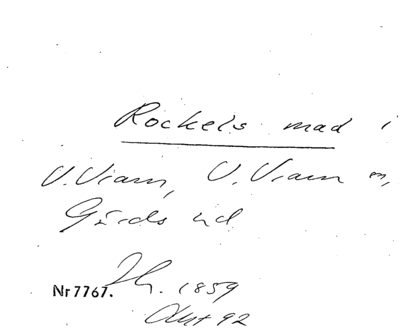 Rockels mad i
V. Viam, V. Viam m,
Gärds hd
Nr 7767. Jh. 1859
Aut 92